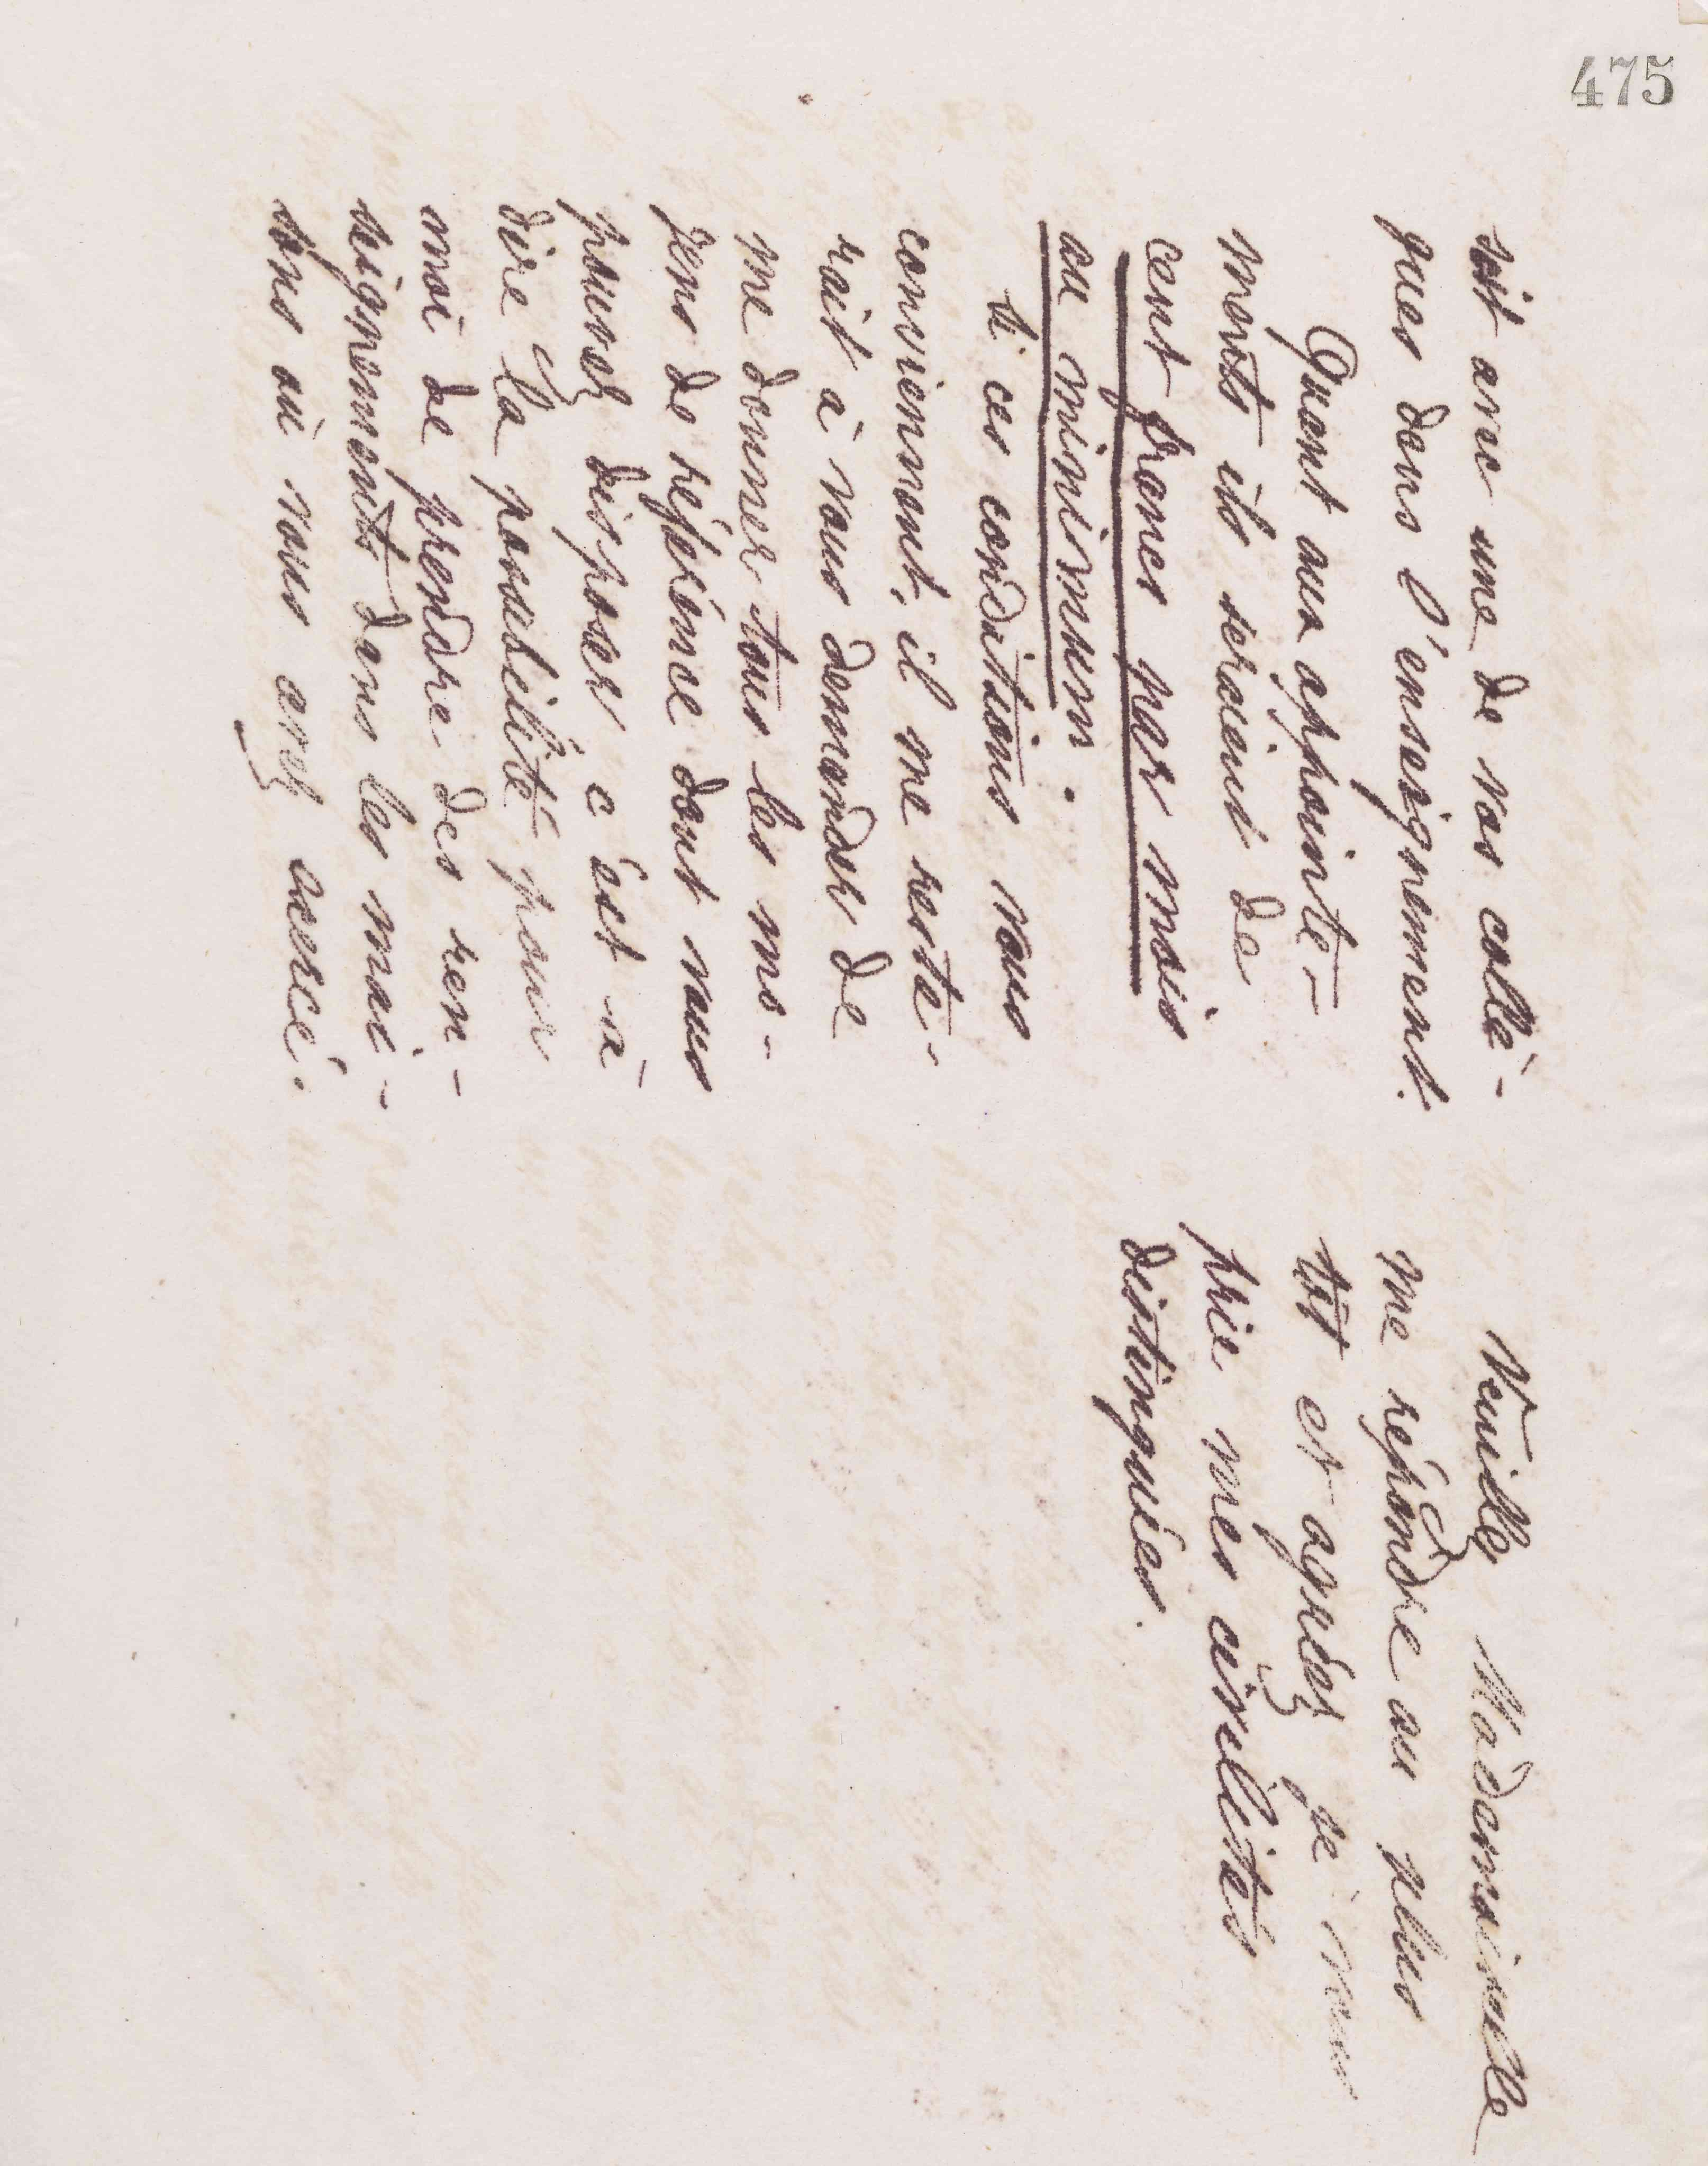 475
soit avec une de vos collè-
gues dans l'enseignement.
Quant aux appointe-
ments ils seraient de
cent francs par mois
au minimum.
Si ces conditions vous
conviennent, il me reste-
rait à vous demander de
me donner tous les mo-
yens de référence dont vous
pouvez disposer c'est-à
dire la possibilité pour
moi de prendre des ren-
seignements dans les mai-
sons où vous avez exercé.
Veuillez Mademoiselle
me répondre au plus
tôt et agréez je vous
prie mes civilités
distinguées.